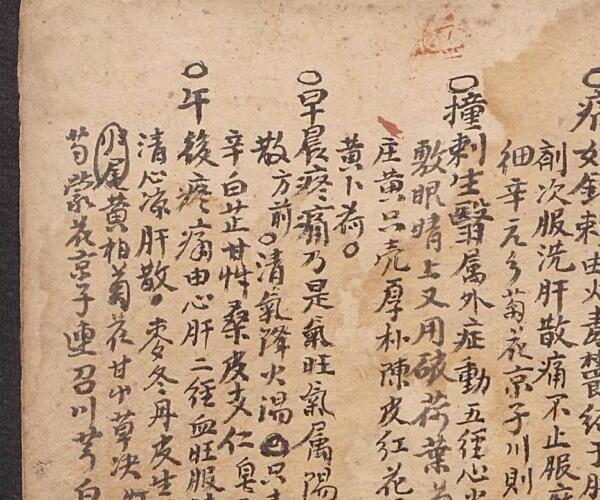 疔如針刺由火毒鬱結于肝
剤次服洗肝散痛不止服
細辛元乡菊花京子川則
○撞刺生翳属外症動五徑心火
敷眼睛上又用破荷葉
庄黄只壳厚朴陳皮紅花
黄卜荷○
○早晨疼痛乃是氣旺氣属陽
散方前○清氣降火湯只
辛白芷甘艸桑皮支仁
○午後疼痛由心肝二徑血旺服
清心凉肝散○麦冬丹皮生
归尾黄柏菊花甘中草决
芍蒙花京子連召川芎白